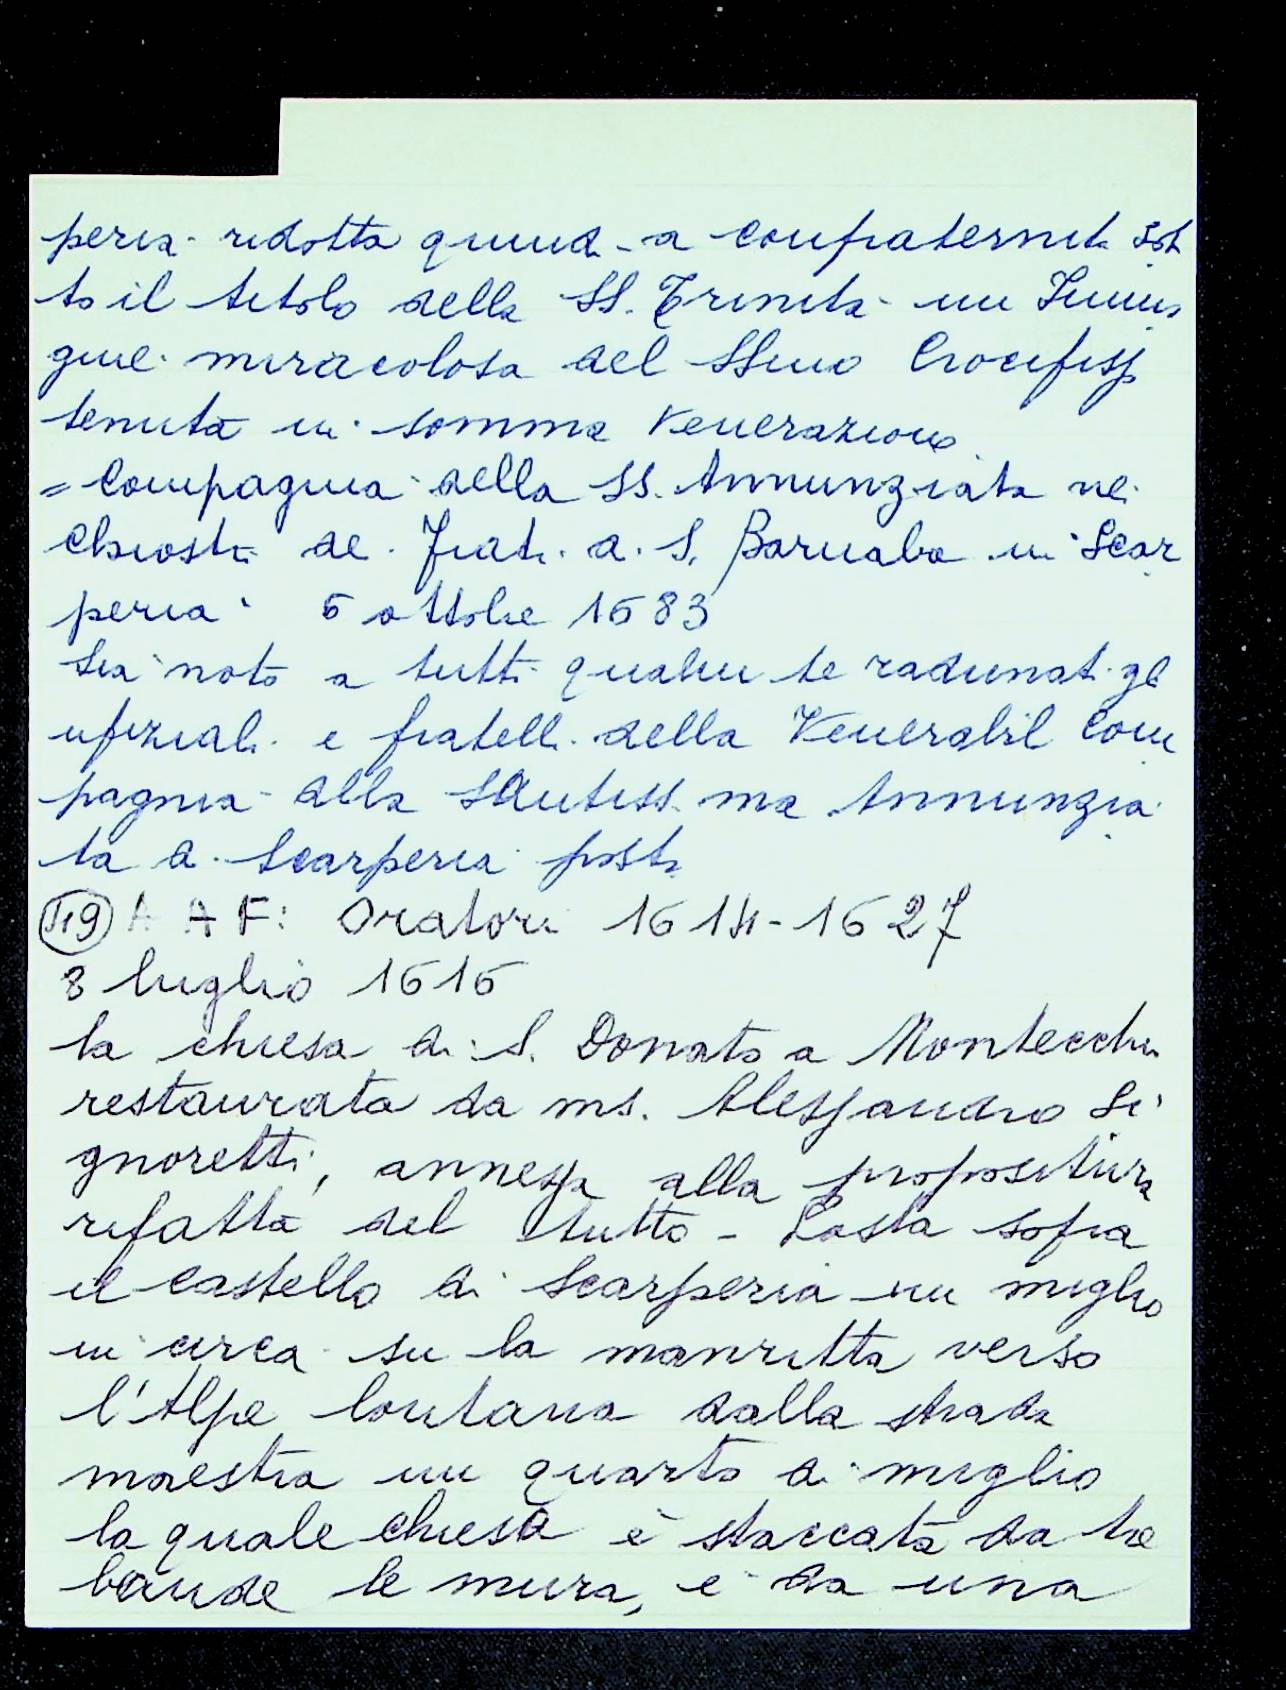 peria ridotta quindi a confraternita sot
to il titolo della SS. Trinità un Imma
gine miracolosa del SSmo Crocifisso
tenuta in somma venerazione
= Compagnia della SS. Annunziata nei
Chiostri dei Frati di S. Barnaba in Scar
peria 6 ottobre 1683
Sia noto a tutti qualmente radunati gl
ufiziali e fratelli della Venerabil Com
pagnia della Santissima Annunzia
ta di Scarperia posta
119 A A F: Oratori 1614-1627
8 luglio 1616
la chiesa di S. Donato a Montecchi
restaurata da ms. Alessandro Si
gnoretti, annessa alla propositura
rifatta del tutto - Posta sopra
il castello di Scarperia un miglio
in circa su la manritta verso
l'Alpe lontana dalla strada
maestra un quarto di miglio
la quale chiesa è staccata da tre
bande le mura, e da una